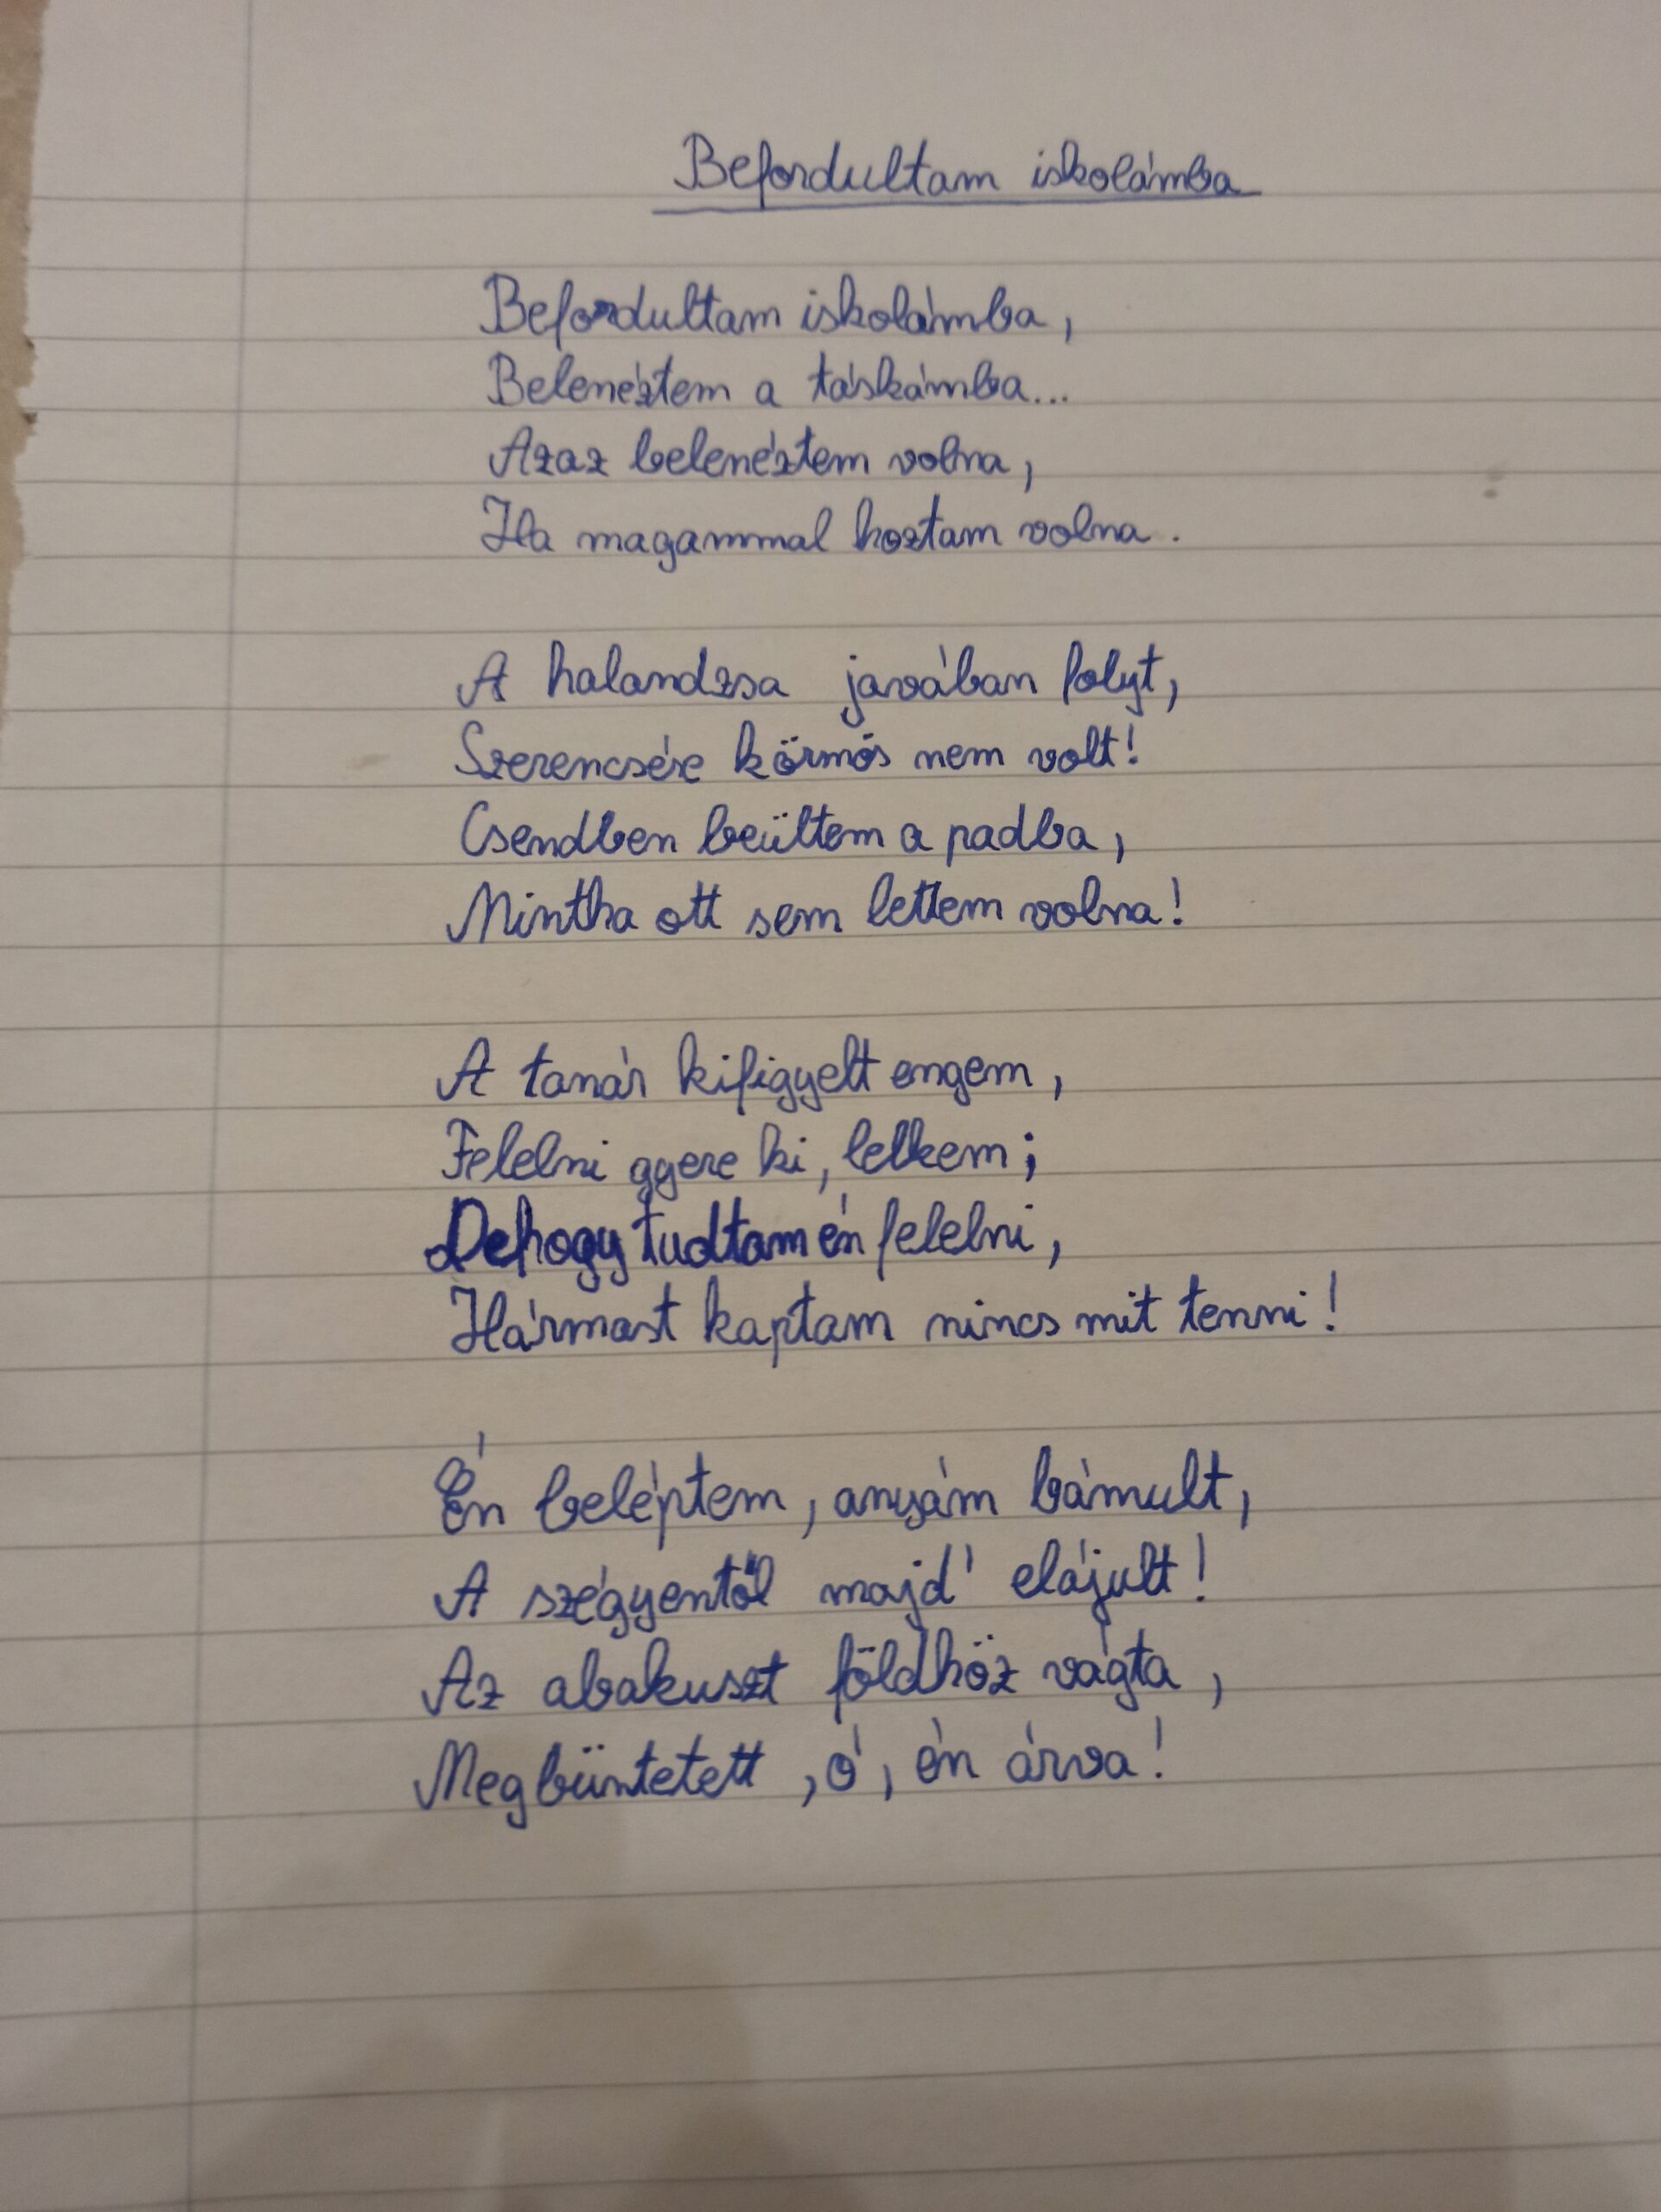 Befordultam iskolámba
Befordultam iskolámba,
Belenéztem a táskámba...
Azaz belenéztem volna,
Ha magammal hoztam volna.
A halandzsa javában folyt,
Szerencsére körmös nem volt!
Csendben beültem a padba,
Mintha ott sem lettem volna!
A tanár kifigyelt engem,
Felelni gyere ki, lelkem;
Dehogy tudtam én felelni,
Hármast kaptam nincs mit tenni!
Én beléptem, anyám bámult,
A szégyentől majd' elájult!
Az abakuszt földhöz vágta,
Megbüntetett, ó, én árva!